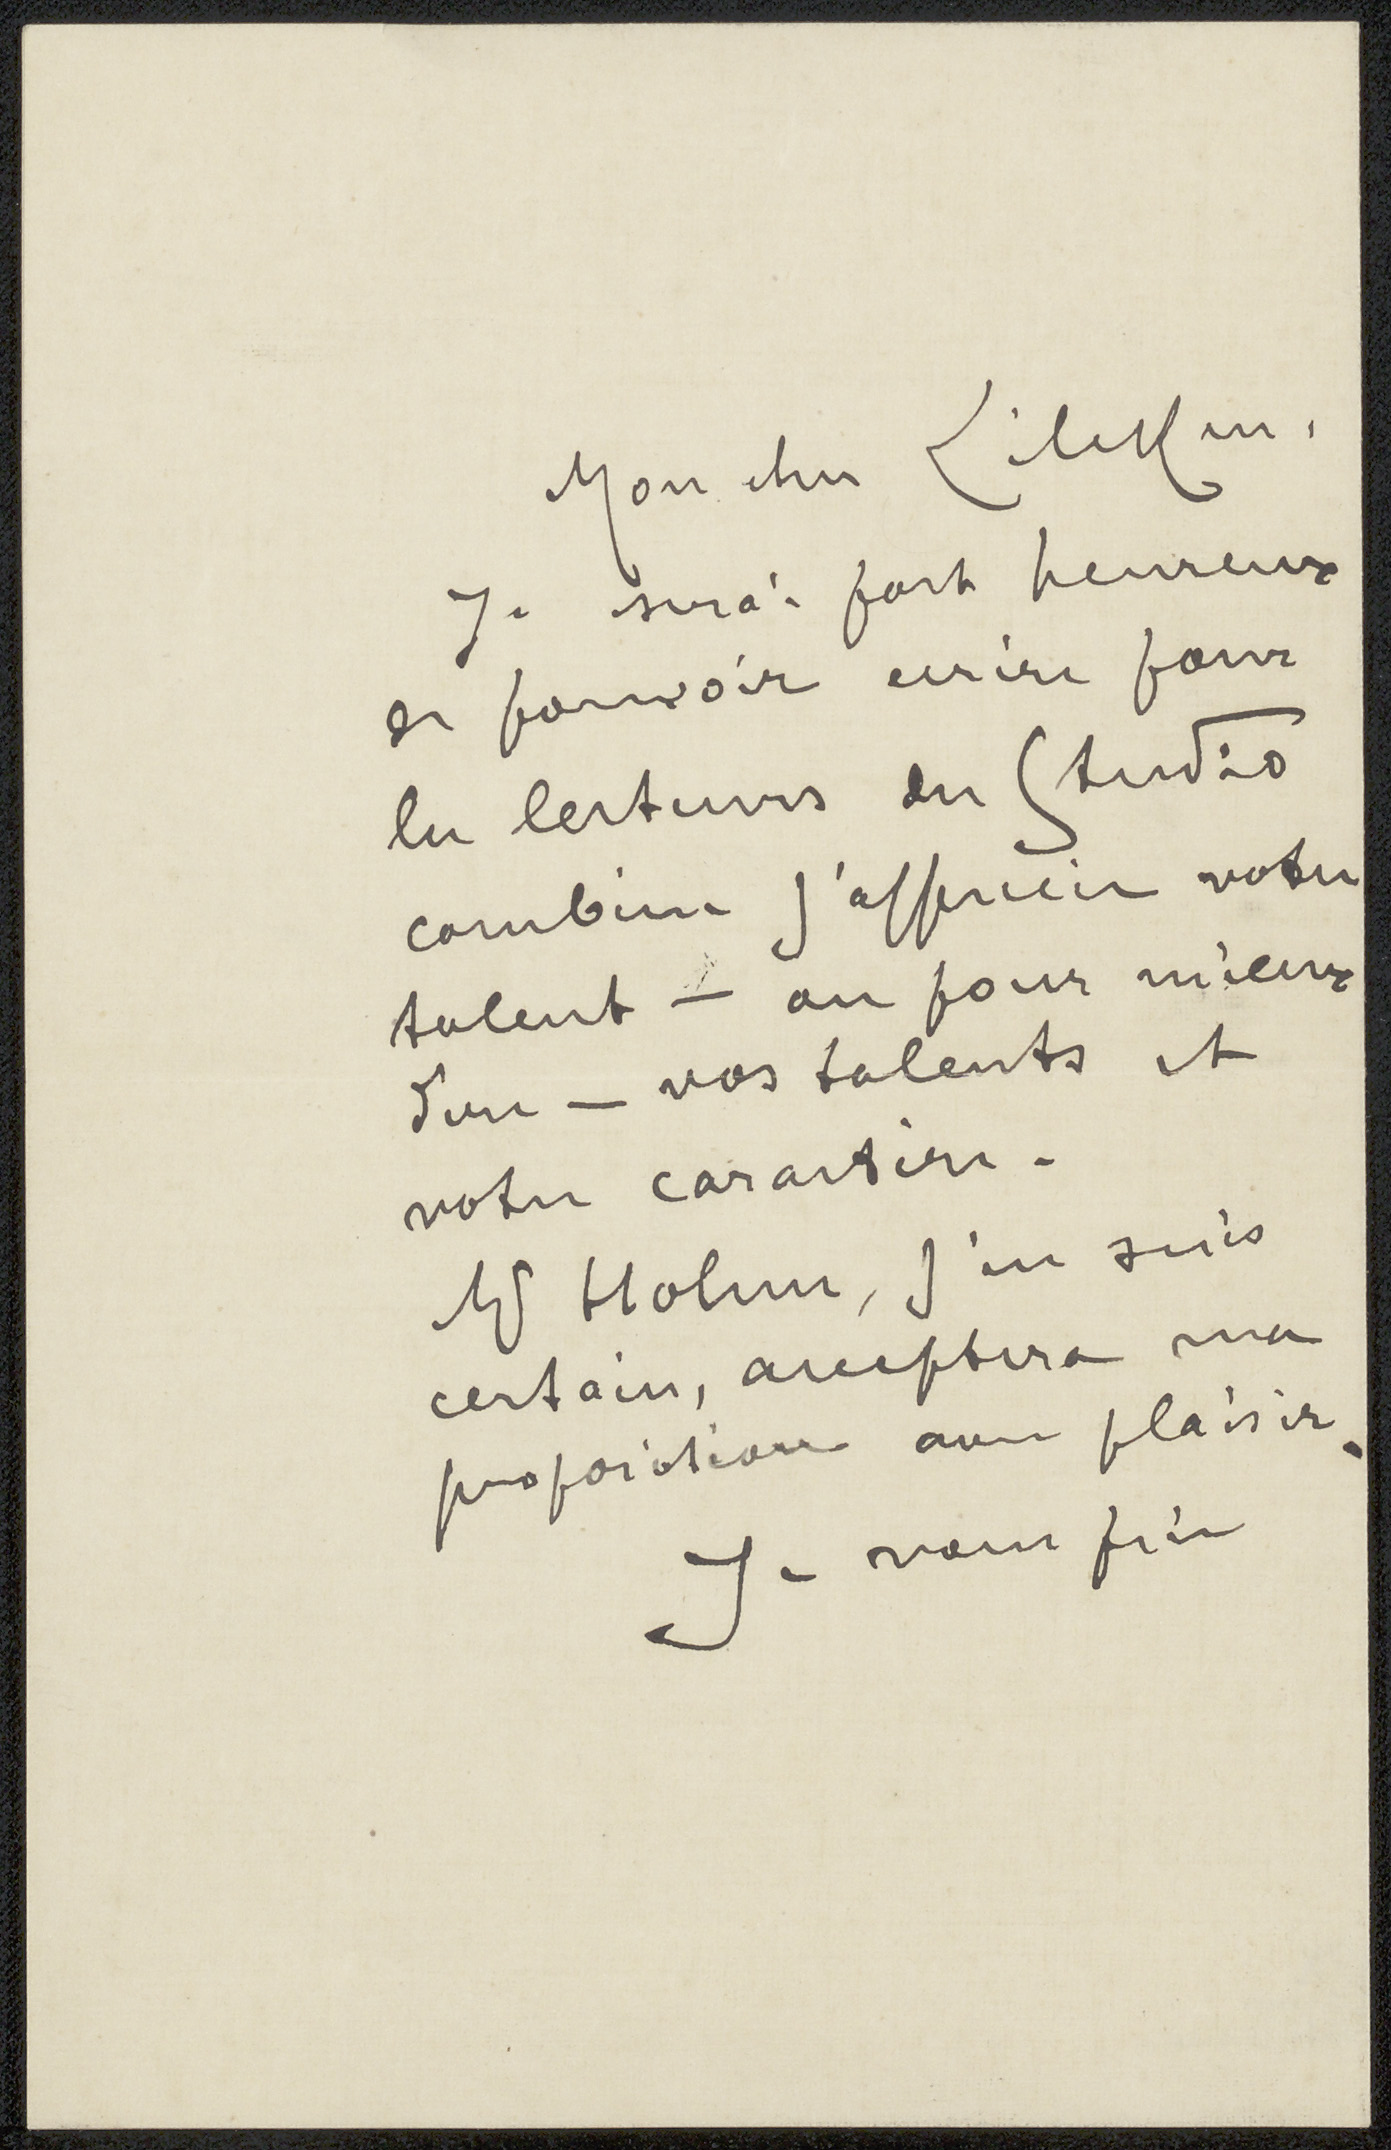 Mon cher Zilcken,
Je serai fort heureux
de pouvoir ecrire pour
les lecteurs du Studio
combien j'apprécie votre
talent — ou pour mieux
dire — vos talents et
votre caractère.
Mr Holme, j'en suis
certain, acceptera ma
proposition avec plaisir.
Je vous prie